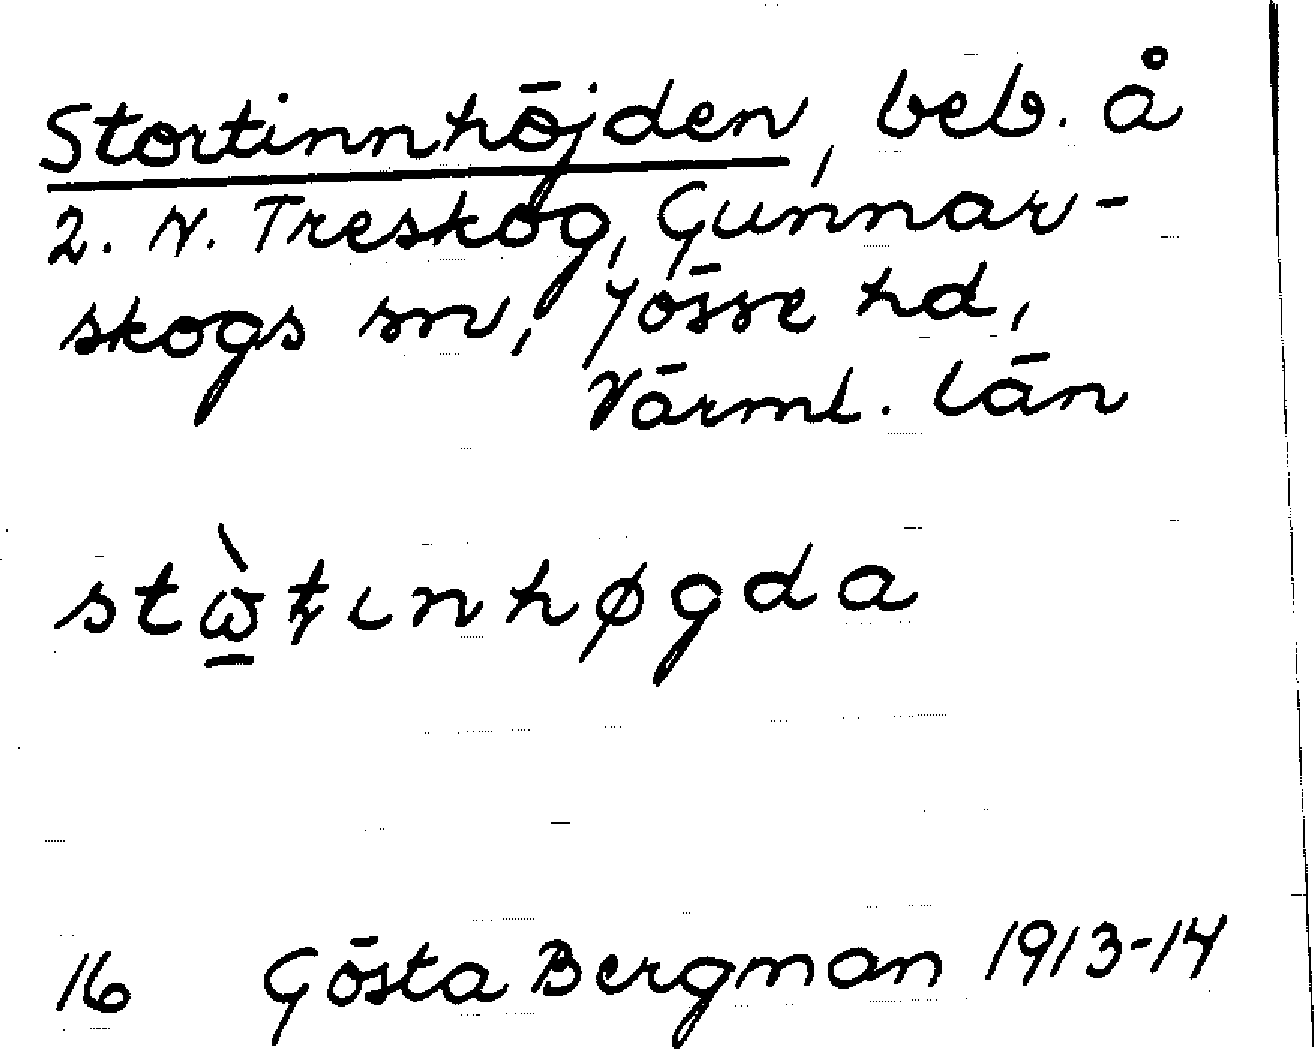 Stortinnhöjden, beb. å
2. N. Treskog, Gunnar-
skogs sn, Jösse hd,
Värml. län
stὼ̲ʈɩnhøgda
16 Gösta Bergman 1913-14